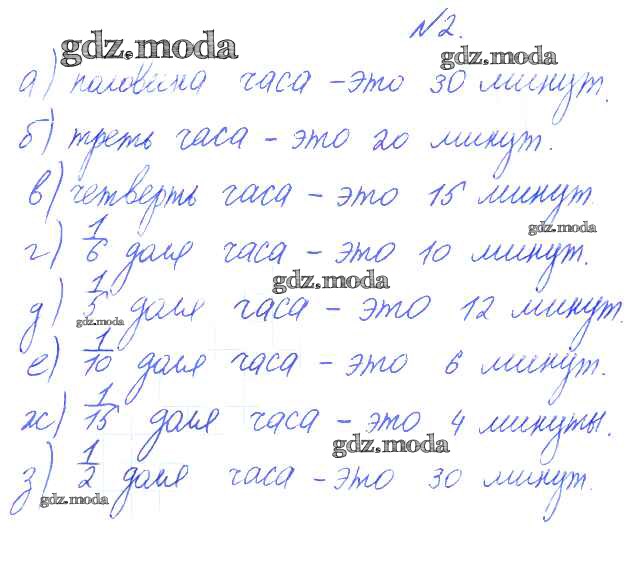 №2.
gdz.moda gdz.moda
а) половина часа – это 30 минут.
б) треть часа – это 20 минут.
в) четверть часа – это 15 минут.
gdz.moda
г) 1/6 доля часа – это 10 минут.
gdz.moda
д) 1/5 доля часа – это 12 минут.
gdz.moda
е) 1/10 доля часа – это 6 минут.
ж) 1/15 доля часа – это 4 минуты.
gdz.moda
з) 1/2 доля часа – это 30 минут.
gdz.moda